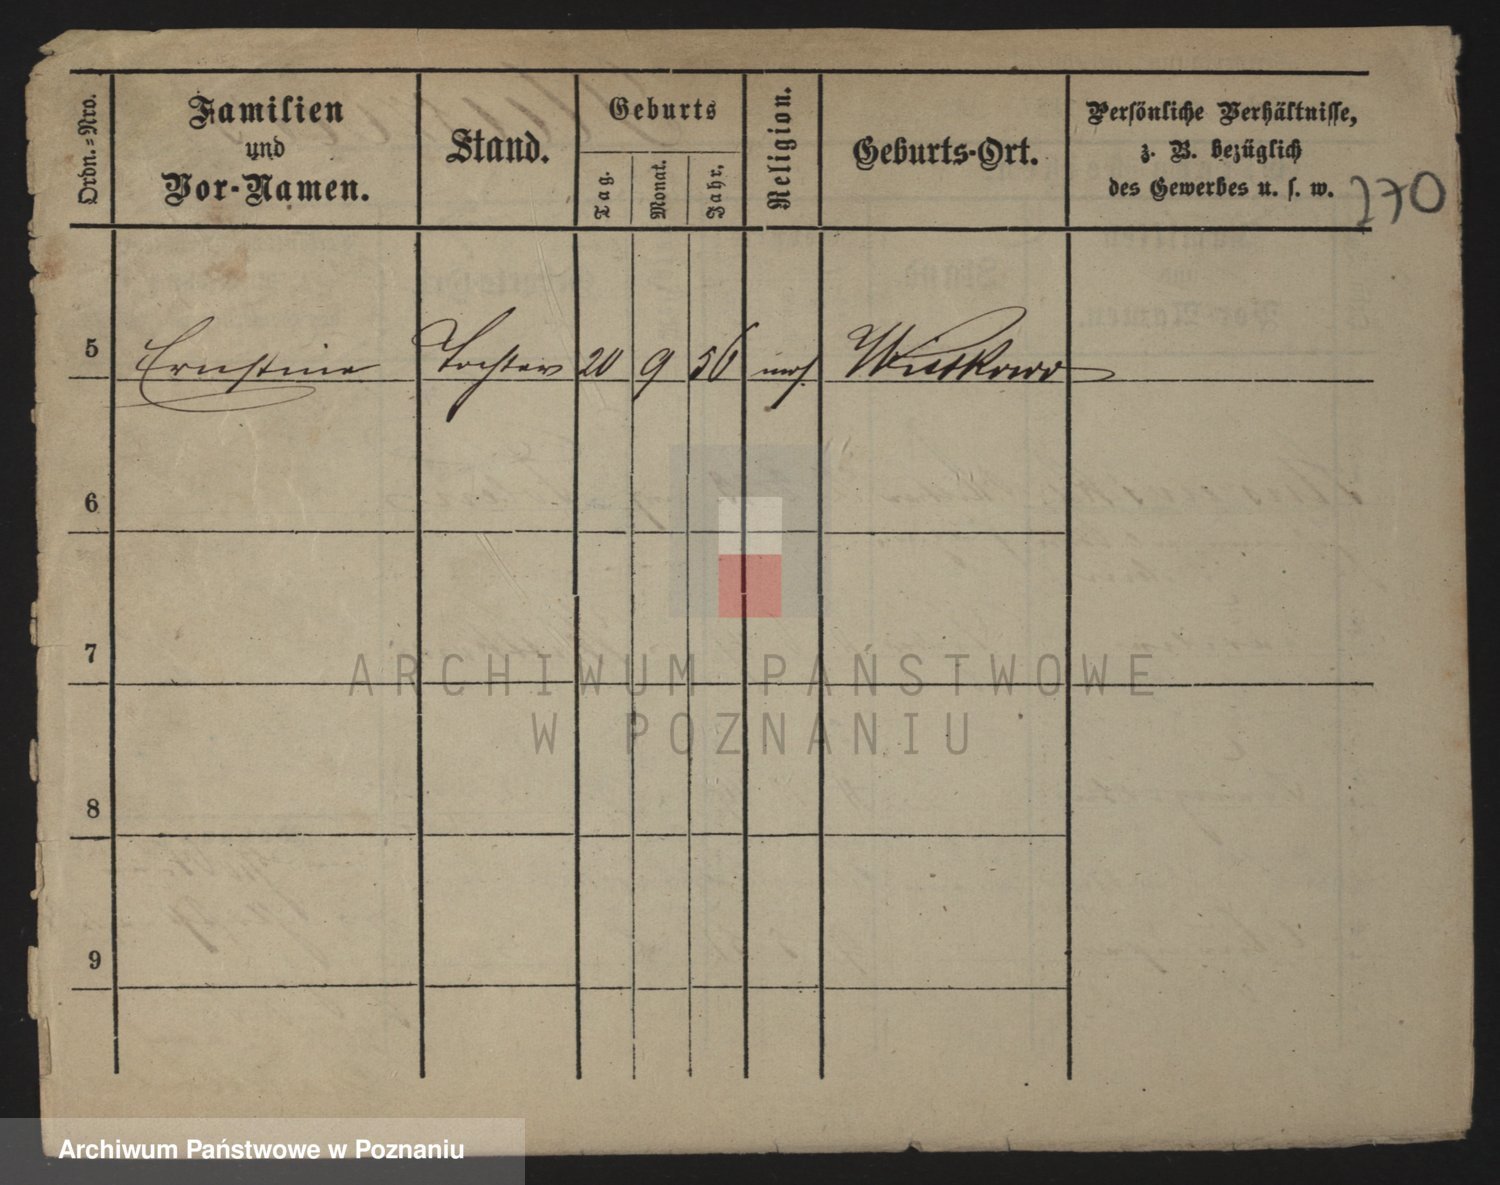 Ordn.-Nro.
Familien
und
Vor-Namen.
Stand.
Geburts
Tag.
Monat.
Jahr.
Religion.
Geburts-Ort.
Persönliche Verhältnisse,
z. B. bezüglich
des Gewerbes u. s. w.
270
5 Ernstine Tochter 20 9 56 mos. Witkowo
6
7
8
9
ARCHIWUM PAŃSTWOWE
W POZNANIU
Archiwum Państwowe w Poznaniu